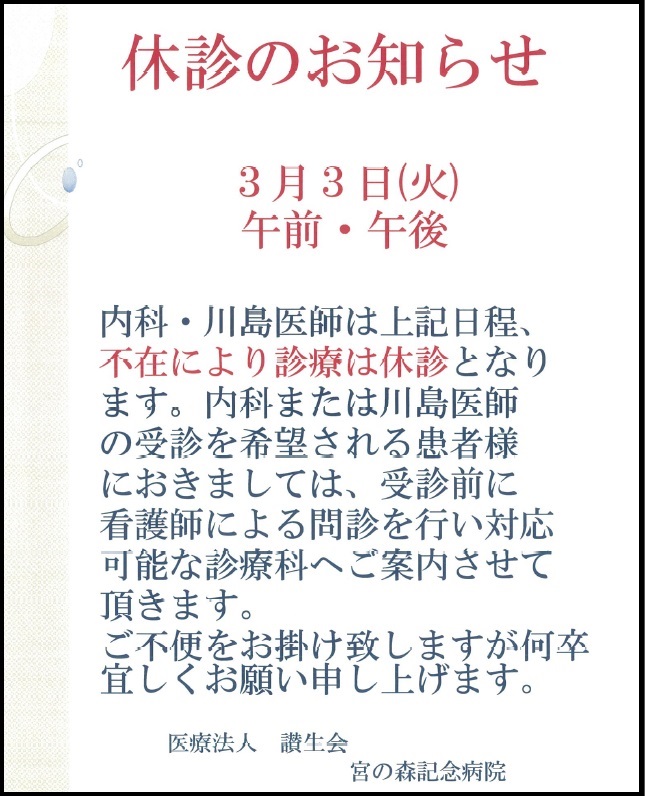 休診のお知らせ
3月3日(火)
午前・午後
内科・川島医師は上記日程、
不在により診療は休診となり
ます。内科または川島医師
の受診を希望される患者様
におきましては、受診前に
看護師による問診を行い対応
可能な診療科へご案内させて
頂きます。
ご不便をお掛け致しますが何卒
宜しくお願い申し上げます。
医療法人 讃生会
宮の森記念病院